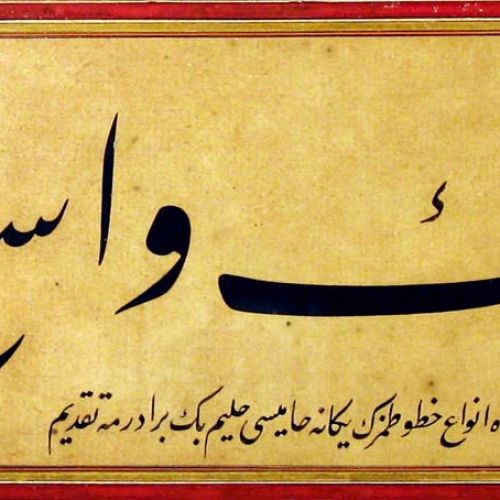 ك وا
انواع خطوطمزك يكانه حاميسى حليم بك برادرمه تقديم